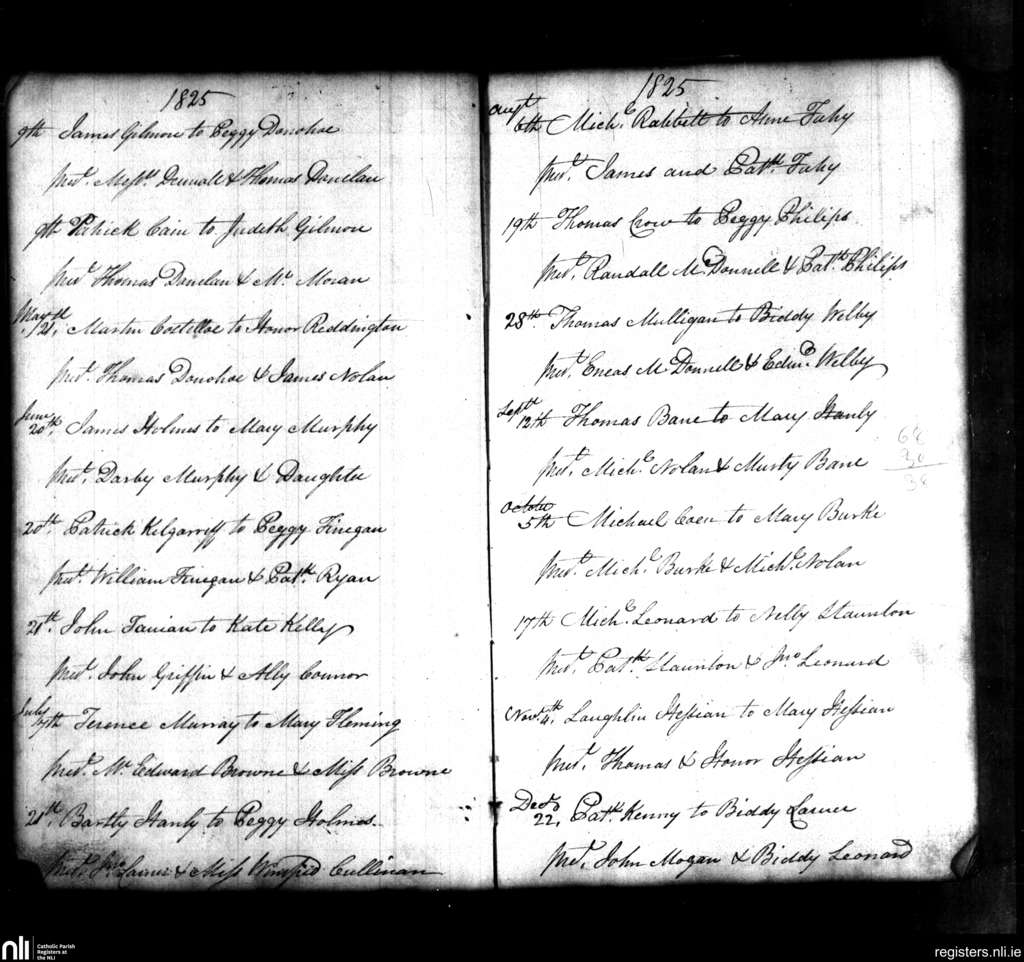 1825
9th James Gilmore to Peggy Donohoe
prest. Messrs. Dunnale & Thomas Donelan
9th Patrick Cain to Judith Gilmore
prest. Thomas Donelan & Mr. Moran
May
21st, Martin Costelloe to Honor Reddington
prest. Thomas Donohoe & James Nolan
June
20th. James Holmes to Mary Murphy
prest. Darby Murphy & Daughter
20th. Patrick Kilgarriff to Peggy Finegan
prest. William Finegan & Patk. Ryan
21th. John Fanian to Kate Kelly
prest. John Griffin & Ally Connor
July
17th Terence Murray to Mary Fleming
prest. Mr. Edward Browne & Miss Browne
21th. Bartly Hanly to Peggy Holmes.
prest. Jno. Larner & Miss Winifred Cullinan
1825
Augt
6th Michl. Rabbitt to Anne Fahy
prest. James and Cath. Fahy
19th Thomas Crow to Peggy Philips
prest. Randall McDonnell & Cath. Philips
28th. Thomas Mulligan to Biddy Welby
prest. Eneas McDonnell & Edmd. Welby
Sept
12th Thomas Bane to Mary Hanly
prest. Michl. Nolan & Murty Bane
October
5th Michael Coen to Mary Burke
prest. Michl. Burke & Michl. Nolan
17th Michl. Leonard to Nelly Staunton
prest. Cath. Staunton & Jno. Leonard
Novr. 4th, Laughlin Hessian to Mary Hessian
prest. Thomas & Honor Hessian
Decr.
22, Patk. Kenny to Biddy Larner
prest. John Mogan & Biddy Leonard
68
30
38
nli Catholic Parish
Registers at
the NLI
registers.nli.ie